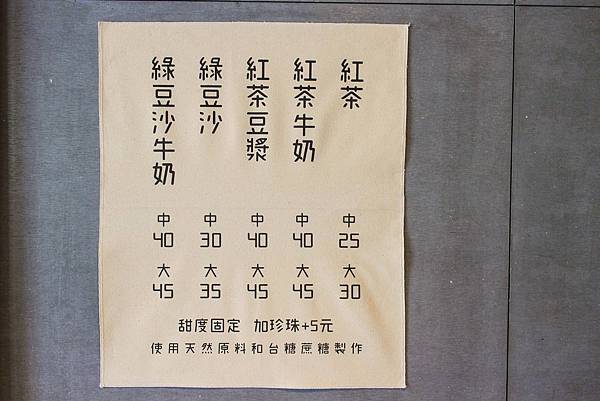 紅茶 中 25 大 30
紅茶牛奶 中 40 大 45
紅茶豆漿 中 40 大 45
綠豆沙 中 30 大 35
綠豆沙牛奶 中 40 大 45
甜度固定 加珍珠+5元
使用天然原料和台糖蔗糖製作